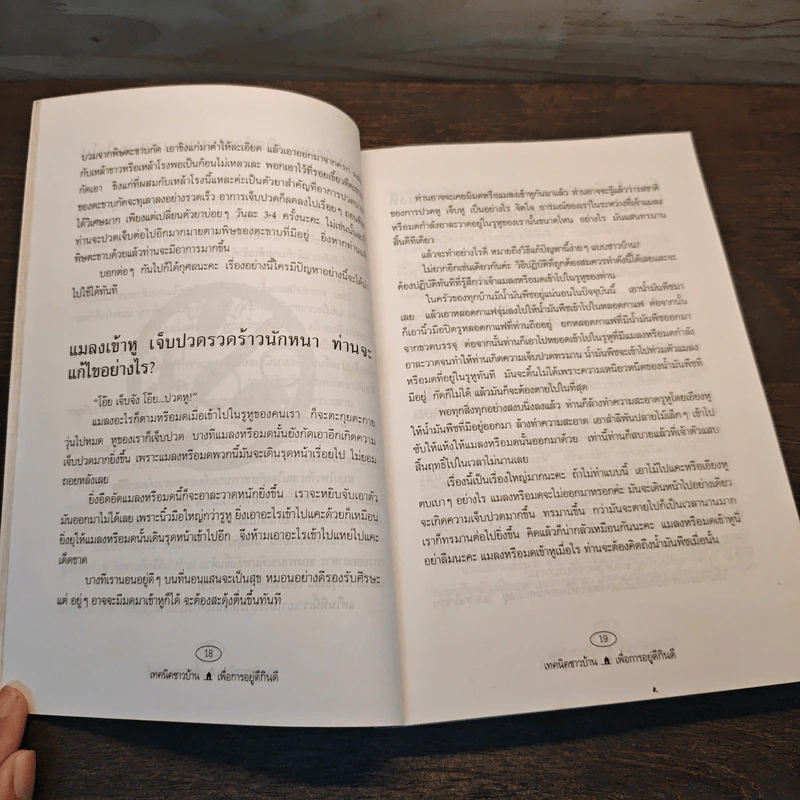 บวมจากพิษตะขาบกัด เอาขิงแก่มาตำให้ละเอียด แล้วเอาออกมาจากครก
กับเหล้าขาวหรือเหล้าโรงพอเป็นก้อนไม่เหลวเละ พอกเอาไว้ที่รอยเขี้ยวที่ตะขาบ
กัดเอา ขิงแก่ที่ผสมกับเหล้าโรงนี้แหละค่ะเป็นตัวยาสำคัญที่อาการปวดบวม
ของตะขาบกัดจะทุเลาลงอย่างรวดเร็ว อาการเจ็บปวดก็ลดลงไปเรื่อยๆ ถอนพิษ
ได้วิเศษมาก เพียงแต่เปลี่ยนตัวยาบ่อยๆ วันละ 3-4 ครั้งนะคะ ไม่เช่นนั้น
ท่านจะปวดเจ็บต่อไปอีกมากมายตามพิษของตะขาบที่มีอยู่ ยิ่งหากท่านแพ้
พิษตะขาบด้วยแล้วท่านจะมีอาการมากขึ้น
บอกต่อๆ กันไปก็ได้กุศลนะคะ เรื่องอย่างนี้ใครมีปัญหาอย่างนี้จะได้นำ
ไปใช้ได้ทันที
แมลงเข้าหู เจ็บปวดรวดร้าวนักหนา ท่านจะ
แก้ไขอย่างไร?
"โอ๊ย เจ็บจัง โอ๊ย...ปวดหู!"
แมลงอะไรก็ตามหรือมดเมื่อเข้าไปในรูหูของคนเรา ก็จะตะกุยตะกาย
วุ่นไปหมด หูของเราก็เจ็บปวด บางทีแมลงหรือมดนั้นยังกัดเอาอีกเกิดความ
เจ็บปวดมากยิ่งขึ้น เพราะแมลงหรือมดพวกนี้มันจะเดินรุดหน้าเรื่อยไป ไม่ยอม
ถอยหลังเลย
ยิ่งอึดอัดแมลงหรือมดนี้ก็จะอาละวาดหนักยิ่งขึ้น เราจะหยิบจับเอาตัว
มันออกมาไม่ได้เลย เพราะนิ้วมือใหญ่กว่ารูหู ยิ่งเอาอะไรเข้าไปแคะด้วยก็เหมือน
ยิ่งยุให้แมลงหรือมดนั้นเดินรุดหน้าเข้าไปอีก จึงห้ามเอาอะไรเข้าไปแหย่ไปแคะ
เด็ดขาด
บางทีเรานอนอยู่ดีๆ บนที่นอนแสนจะเป็นสุข หมอนอย่างดีรองรับศีรษะ
แต่ อยู่ๆ อาจจะมีมดมาเข้าหูก็ได้ จะต้องสะดุ้งตื่นขึ้นทันที
18
เทคนิคชาวบ้าน เพื่อการอยู่ดีกินดี
ท่านอาจจะเคยมีมดหรือแมลงเข้าหูกันมาแล้ว ท่านอาจจะรู้แล้วว่ารสชาติ
ของการปวดหู เจ็บหู เป็นอย่างไร จิตใจ อารมณ์ของเราในระหว่างที่เจ้าแมลง
หรือมดกำลังอาละวาดอยู่ในรูหูของเรานั้นขนาดไหน อย่างไร มันแสนทรมาน
สิ้นดีทีเดียว
แล้วจะทำอย่างไรดี หมายถึงวิธีแก้ปัญหานี้ง่ายๆ แบบชาวบ้าน?
ไม่ยากอีกเช่นเดียวกันค่ะ วิธีปฏิบัติที่ถูกต้องสมควรทำดังนี้ได้เลยและจะ
ต้องปฏิบัติทันทีที่รู้สึกว่าเจ้าแมลงหรือมดเข้าไปในรูหูของท่าน
ในครัวของทุกบ้านมีน้ำมันพืชอยู่แน่นอนในปัจจุบันนี้ เอาน้ำมันพืชมา
เลย แล้วเอาหลอดกาแฟจุ่มลงไปให้น้ำมันพืชเข้าไปในหลอดกาแฟ ต่อจากนั้น
ก็เอานิ้วมือปิดรูหลอดกาแฟที่ท่านถืออยู่ ยกหลอดกาแฟที่มีน้ำมันพืชออกมา
จากขวดบรรจุ ต่อจากนั้นท่านก็เอาไปหยอดเข้าไปในรูหูที่มีแมลงหรือมดกำลัง
อาละวาดจนทำให้ท่านเกิดความเจ็บปวดทรมาน น้ำมันพืชจะเข้าไปท่วมตัวแมลง
หรือมดที่อยู่ในรูหูทันที มันจะดิ้นไม่ได้เพราะความเหนียวหนืดของน้ำมันพืชที่
มีอยู่ กัดก็ไม่ได้ แล้วมันก็จะต้องตายไปในที่สุด
พอทุกสิ่งทุกอย่างสงบนิ่งลงแล้ว ท่านก็ล้างทำความสะอาดรูหูโดยเอียงหู
ให้น้ำมันพืชที่มีอยู่ออกมา ล้างทำความสะอาด เอาสำลีพันปลายไม้เล็กๆ เข้าไป
ซับให้แห้งให้แมลงหรือมดนั้นออกมาด้วย เท่านี้ท่านก็สบายแล้วที่เจ้าตัวแสบ
สิ้นฤทธิ์ไปในเวลาไม่นานเลย
เรื่องนี้เป็นเรื่องใหญ่มากนะคะ ถ้าไม่ทำแบบนี้ เอาไม้ไปแคะหรือเอียงหู
ตบเบาๆ อย่างไร แมลงหรือมดจะไม่ออกมาหรอกค่ะ มันจะเดินหน้าไปอย่างเดียว
จะเกิดความเจ็บปวดมากขึ้น ทรมานขึ้น กว่ามันจะตายไปก็เป็นเวลานานมาก
เราก็ทรมานต่อไปยิ่งขึ้น คิดแล้วก็น่ากลัวเหมือนกันนะคะ แมลงหรือมดเข้าหูนี่
อย่าลืมนะคะ แมลงหรือมดเข้าหูเมื่อไร ท่านจะต้องคิดถึงน้ำมันพืชเมื่อนั้น
19
เทคนิคชาวบ้าน เพื่อการอยู่ดีกินดี